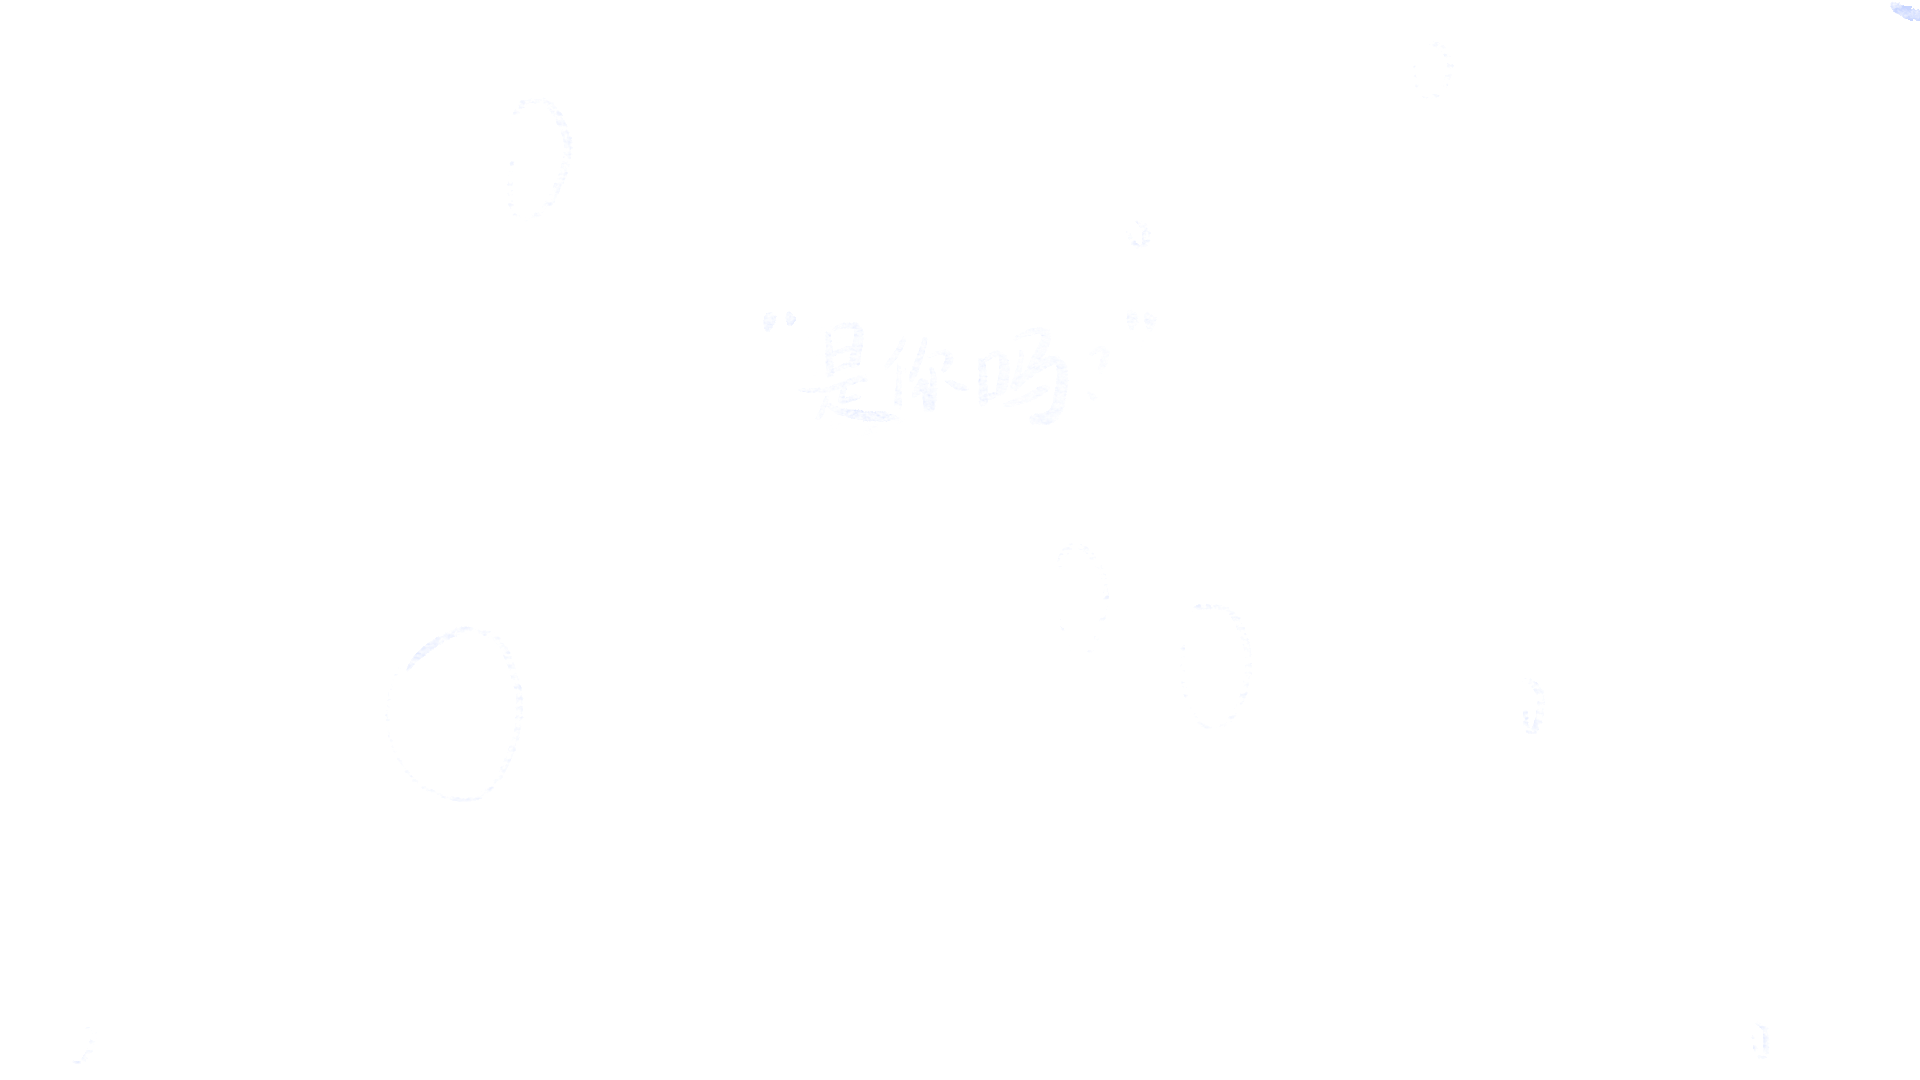 “是你吗？”